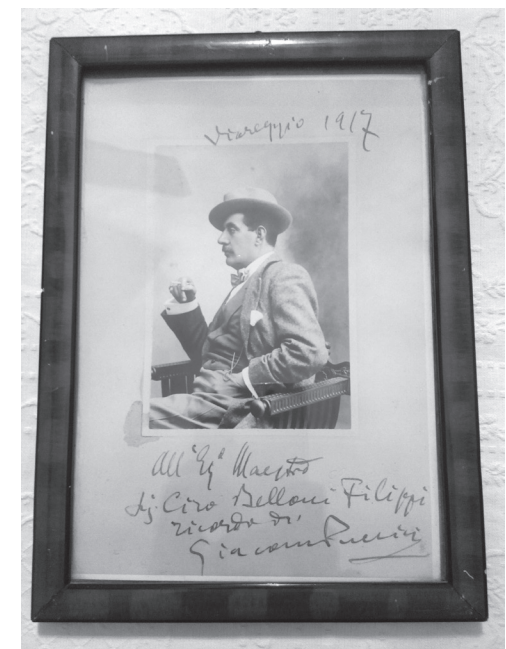 Viareggio 1917
All'Eg° Maestro
Sig. Ciro Belloni Filippi
ricordo di
Giacomo Puccini